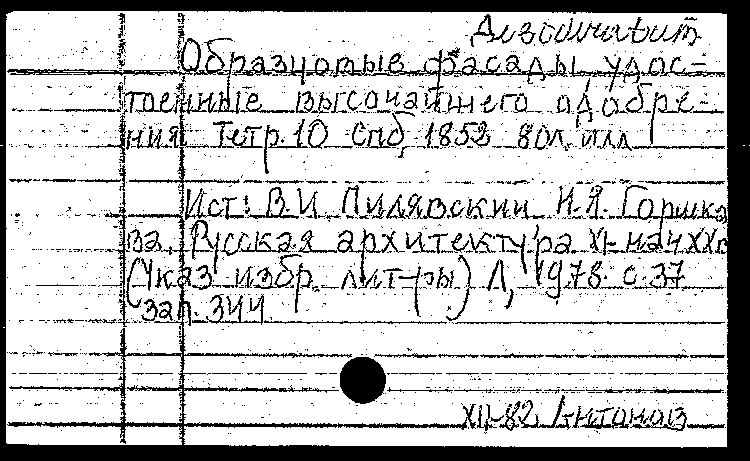 Дезочиавит
Образцовые фасады, удос-
тоенные высочайшего одобре-
ния. Тетр. 10 Спб, 1853 80л. илл
Ист: В.И. Пилявский Н.Я. Горшко
ва, Русская архитектура XI-нач XX в
(Указ избр. лит-ры) Л, 1978. с. 37
зап. 344
XII-82 Антонов